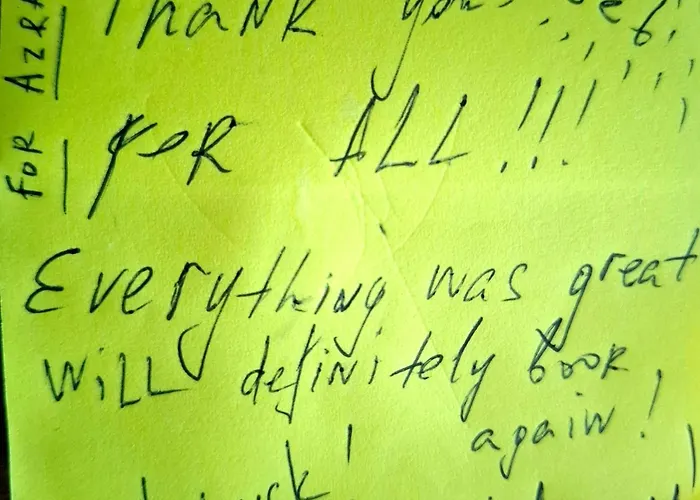 Thank you
for ALL!!!
Everything was great
Will definitely book
again!
For